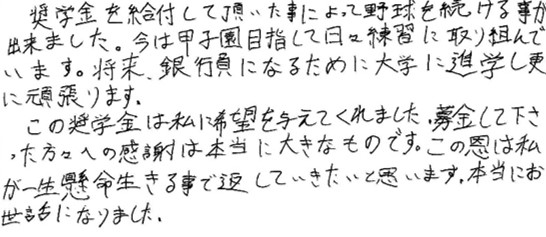 奨学金を給付して頂いた事によって野球を続ける事が
出来ました。今は甲子園目指して日々練習に取り組んで
います。将来、銀行員になるために大学に進学し更
に頑張ります。
この奨学金は私に希望を与えてくれました。募金して下さ
った方々への感謝は本当に大きなものです。この恩は私
が一生懸命生きる事で返していきたいと思います。本当にお
世話になりました。